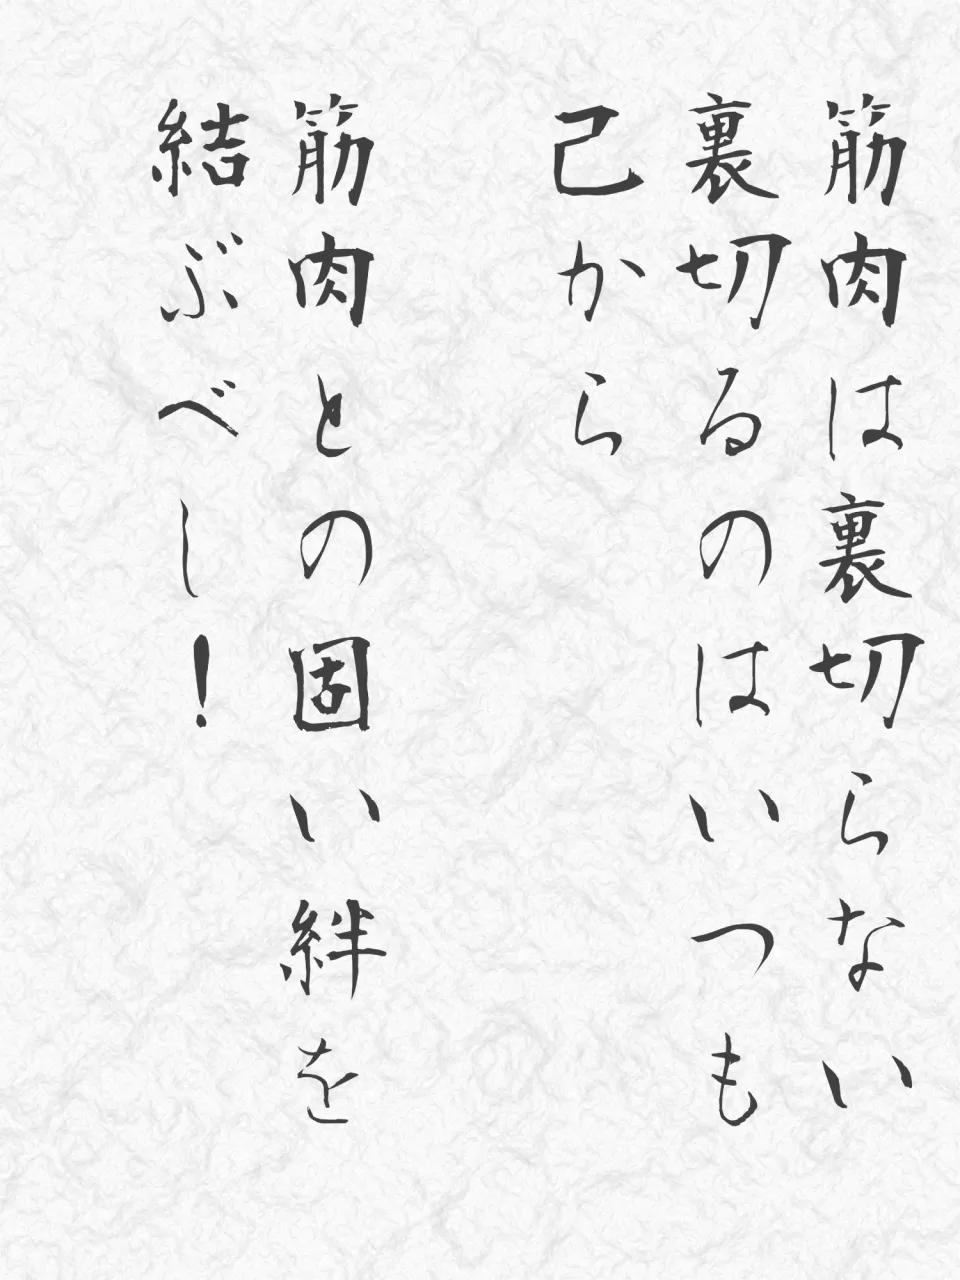 筋肉は裏切らない
裏切るのはいつも
己から
筋肉との固い絆を
結ぶべし！